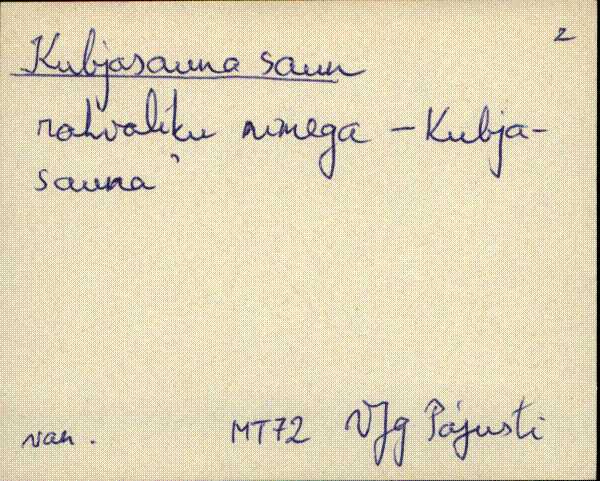 2
Kubjasauna saun
rahvaliku nimega – Kubja-
sauna'
van. MT72 VJg Pajusti